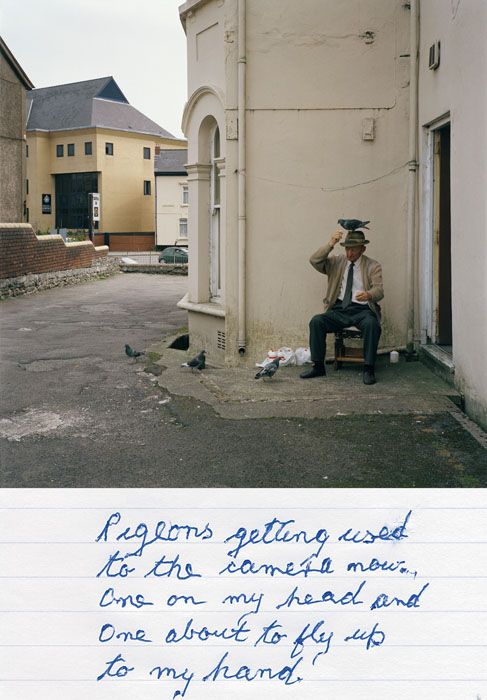 Pigeons getting used
to the camera now..
One on my head and
One about to fly up
to my hand!